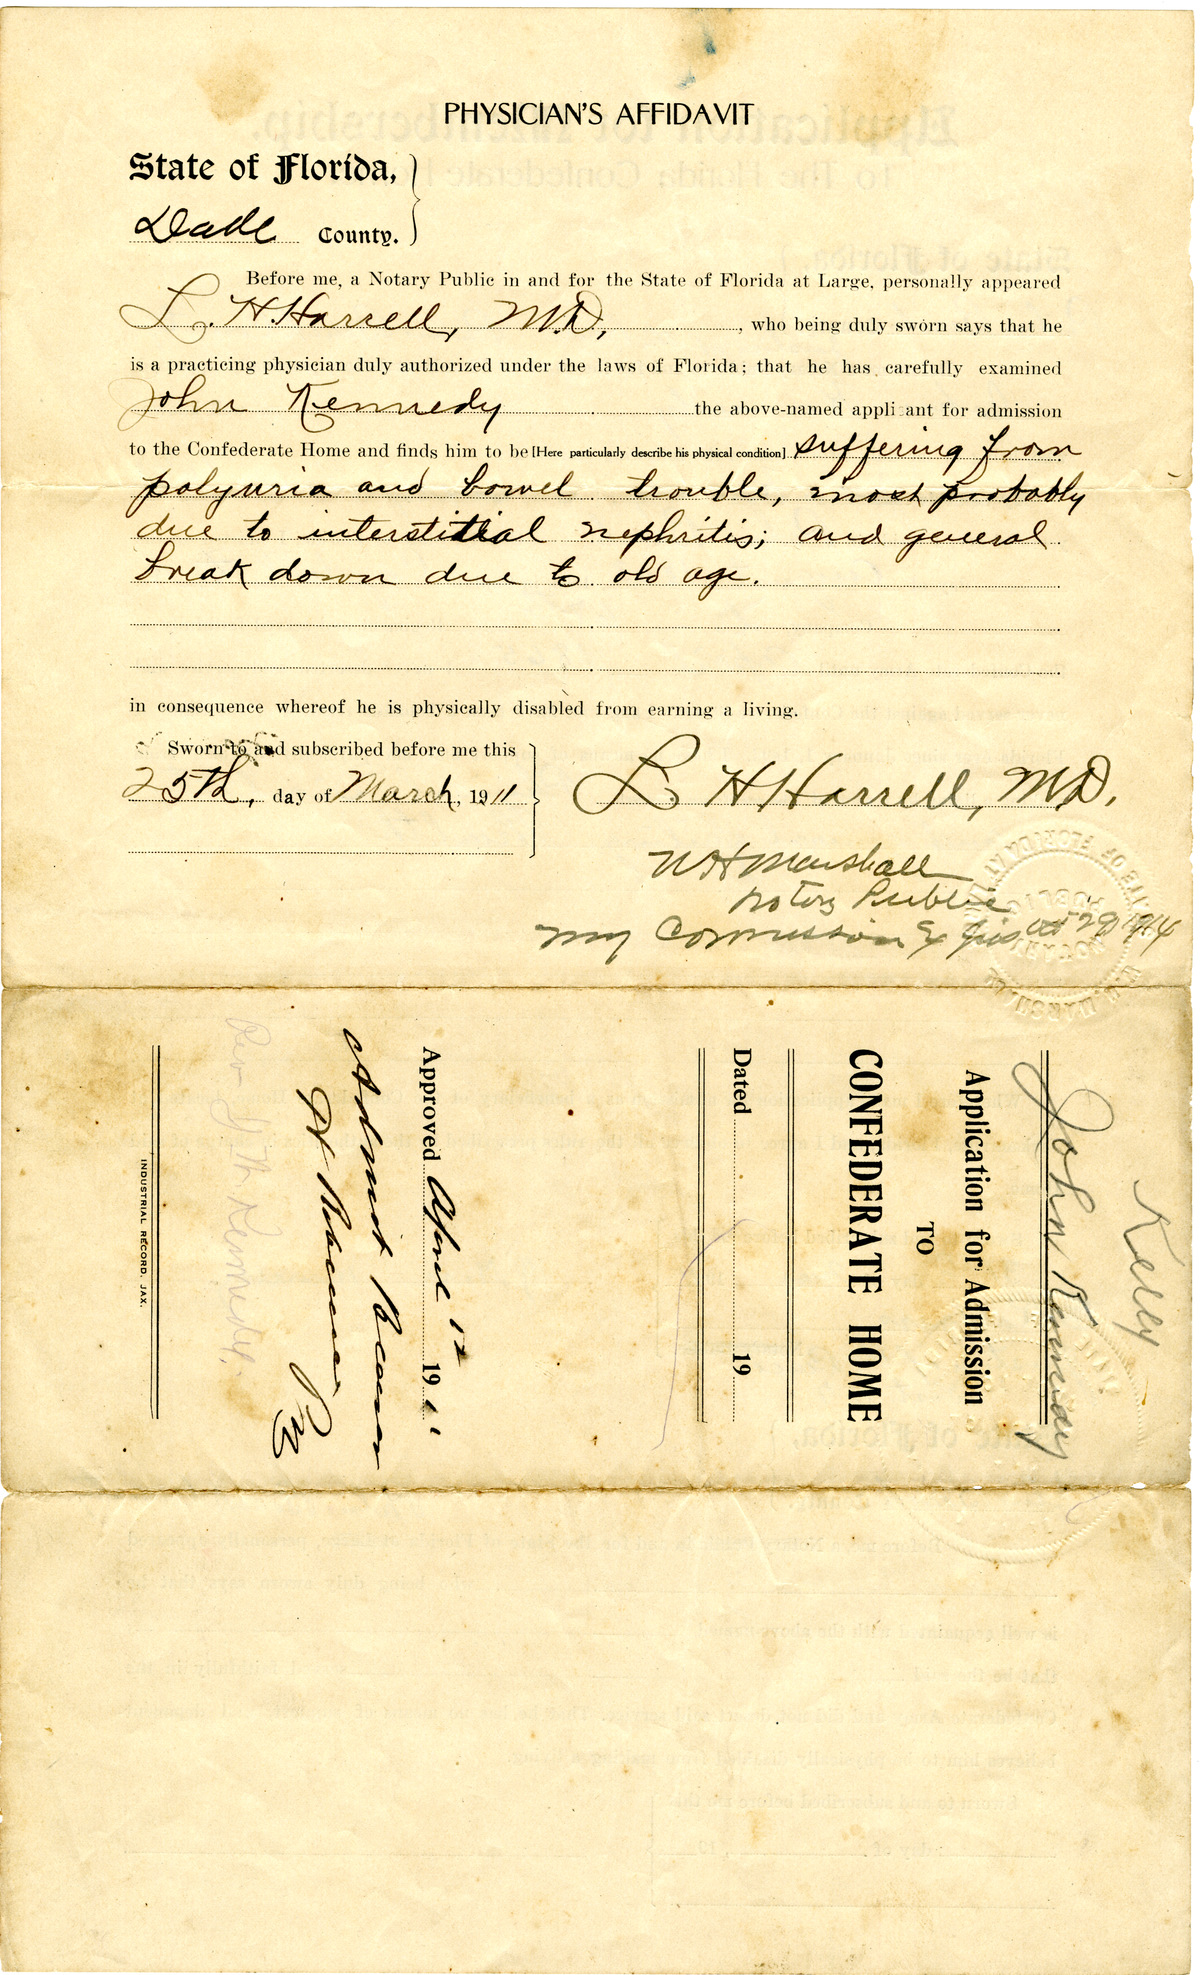 PHYSICIAN'S AFFIDAVIT
State of Florida,
Dade County.
Before me, a Notary Public in and for the State of Florida at Large, personally appeared
L. H. Harrell, M.D., who being duly sworn says that he
is a practicing physician duly authorized under the laws of Florida; that he has carefully examined
John Kennedy the above-named applicant for admission
to the Confederate Home and finds him to be [Here particularly describe his physical condition] suffering from
polyuria and bowel trouble, most probably
due to interstitial nephritis; and general
break down due to old age.
in consequence whereof he is physically disabled from earning a living.
Sworn to and subscribed before me this
25th, day of March, 1911
L H Harrell, MD.
W H Marshall
Notary Public
My Commission Expires Oct 29 1914
Kelly
John Kennedy
Application for Admission
TO
CONFEDERATE HOME
Dated 19
Approved April 12 1911
Admit
Kennedy.
INDUSTRIAL RECORD, JAX.